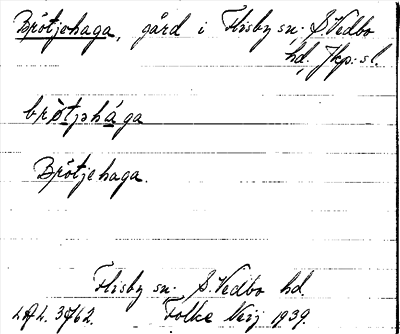 Brötjehaga, gård i Flisby sn, S. Vedbo
hd, Jkp. sl.
brötjəhága
Brötjehaga.
Flisby sn. S. Vedbo hd
Folke 1939.